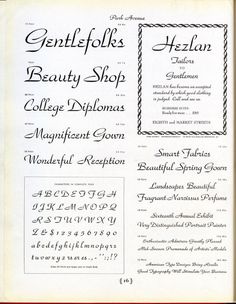 Park Avenue
Gentlefolks
Beauty Shop
College Diplomas
Magnificent Gown
Wonderful Reception
CHARACTERS IN COMPLETE FONT
A B C D E F G H
I J K L M N O P Q R
S T U V W X Y Z
& $ 1 2 3 4 5 6 7 8 9 0
a b c d e f g h i j k l m n o p q r s
t u v w x y z
Hezlan
Tailors
TO
Gentlemen
HEZLAN has become an accepted
standard by which good clothing
is judged. Call and see us.
BUSINESS SUITS
EIGHTH and MARKET STREETS
Smart Fabrics
Beautiful Spring Gown
Landscapes Beautiful
Fragrant Narcissus Perfume
Sixteenth Annual Exhibit
Very Distinguished Portrait Painter
Enthusiastic Admirers Greatly Pleased
Mid-Season Promenade of Artists' Models
American Type Designs Bring Results
Good Typography Will Stimulate Your Business
[16]